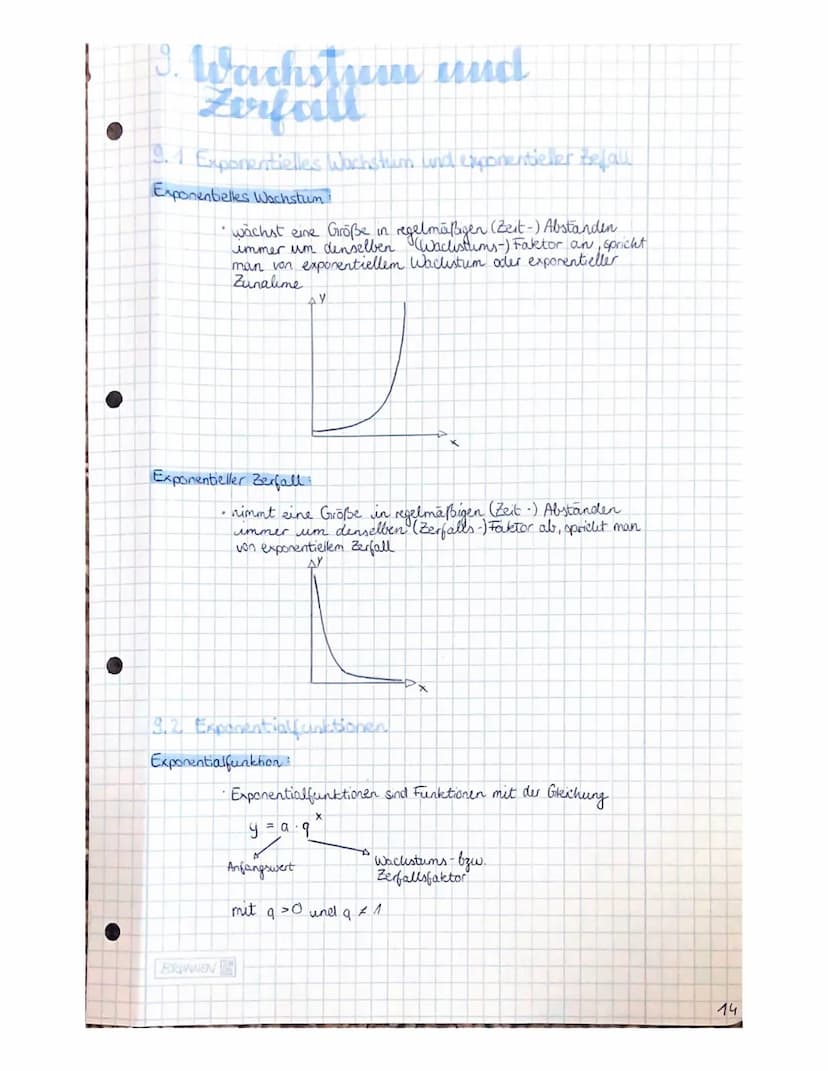 9. Wachstum und
Zerfall
9.1 Exponentielles Wachstum und exponentieller Zefall
Exponentielles Wachstum:
· wächst eine Größe in regelmäßigen (Zeit-) Abständen
immer um denselben (Wachstums-) Faktor an, spricht
man von exponentiellem Wachstum oder exponentieller
Zunahme
y
x
Exponentieller Zerfall:
· nimmt eine Größe in regelmäßigen (Zeit-) Abständen
immer um denselben (Zerfalls-) Faktor ab, spricht man
von exponentiellem Zerfall
y
x
9.2 Exponentialfunktionen
Exponentialfunktion:
· Exponentialfunktionen sind Funktionen mit der Gleichung
y = a · q^x
Anfangswert
Wachstums- bzw.
Zerfallsfaktor
mit q > 0 und q ≠ 1
BRUNNEN
14